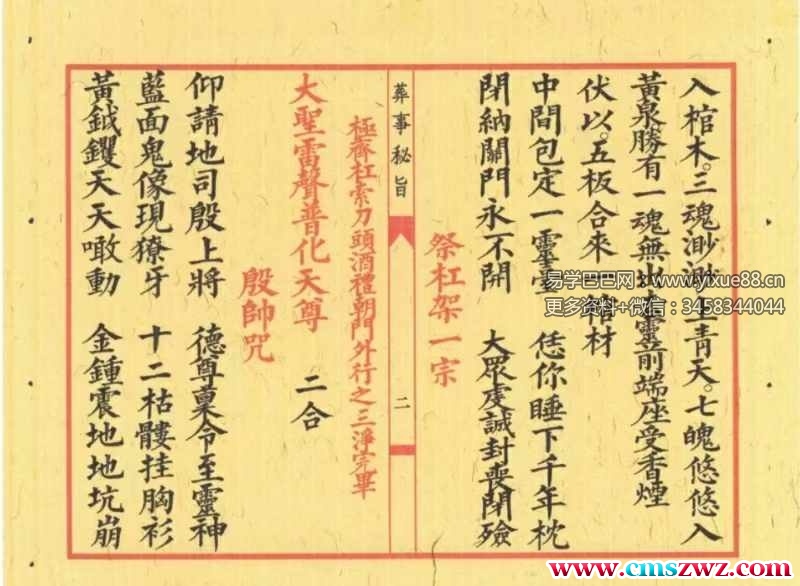 入棺木。三魂渺渺上青天。七魄悠悠入
黃泉勝有一魂無 靈前端座受香煙
伏以。五板合來 材
中間包定一靈 恁你睡下千年枕
閉納關門永不開 大眾虔誠封喪閉殮
祭杠架一宗
葬事秘旨
二
極齊杠索刀頭酒禮朝門外行之三淨完畢
大聖雷聲普化天尊 二合
殷帥咒
仰請地司殷上將 德尊稟令至靈神
藍面鬼像現獠牙 十二枯髏挂胸衫
黃鉞钁天天噉動 金鍾震地地坑崩
易学巴巴网：www.yixue88.cn
更多资料+微信：3458344044
www.cmszwz.com